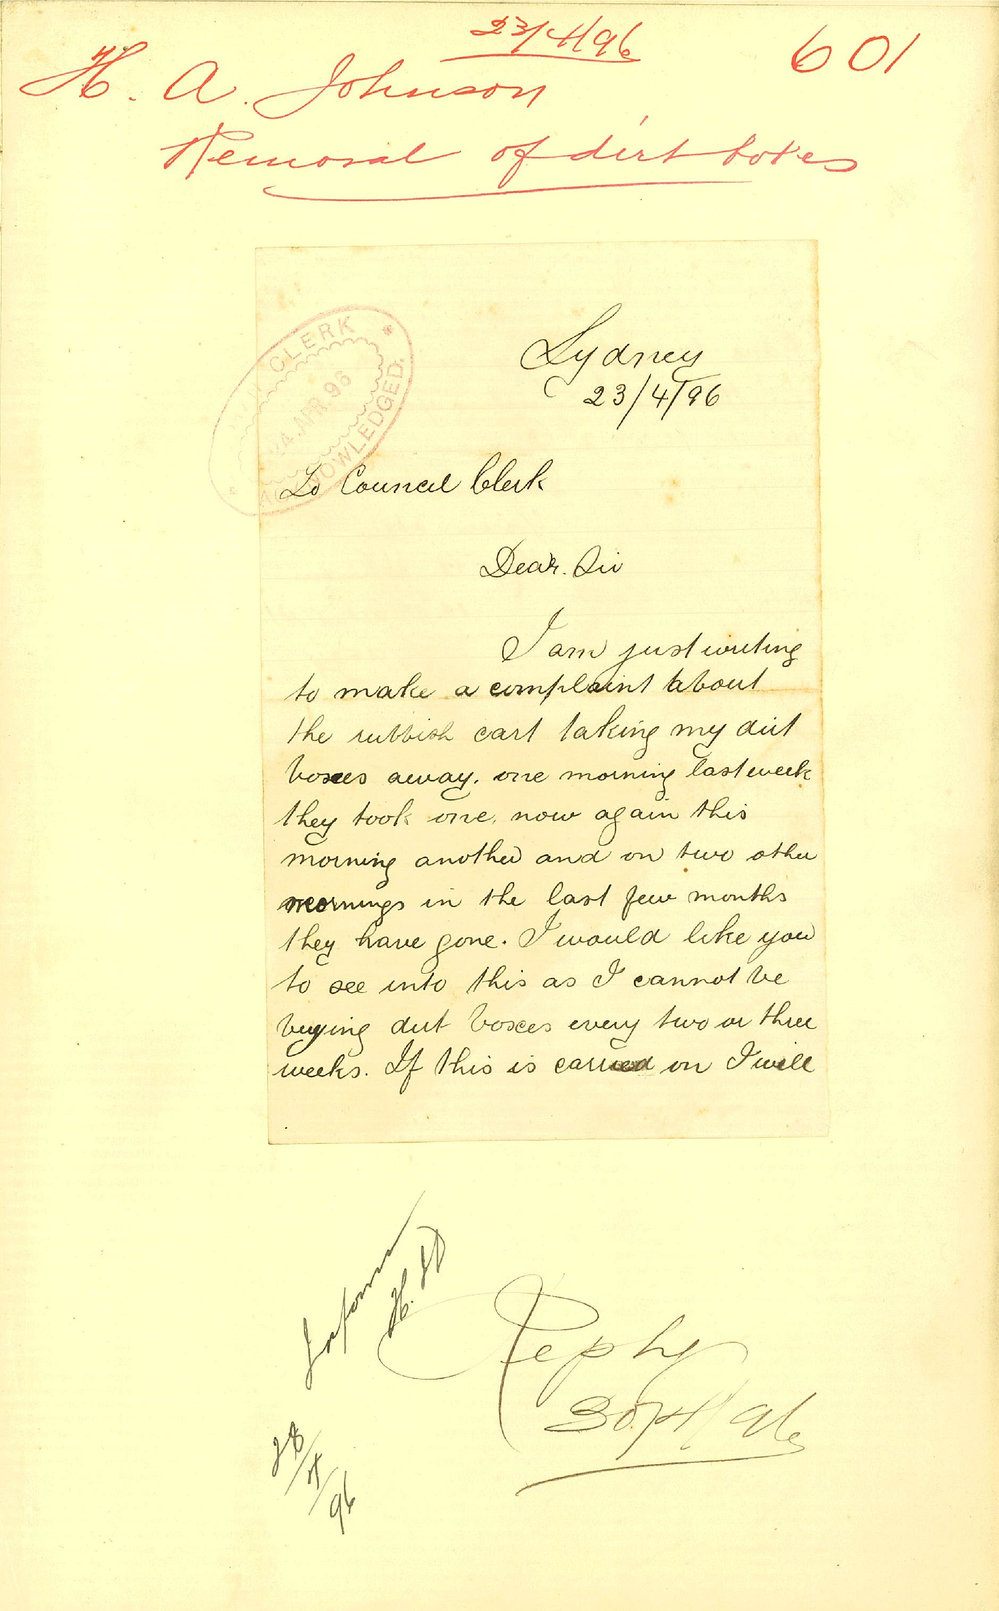 23/4/96
601
H. A. Johnson
Removal of dirt boxes
CLERK
24. APR. 96
ACKNOWLEDGED.
Sydney
23/4/96
To Council Clerk
Dear. Sir
I am just writing
to make a complaint about
the rubbish cart taking my dirt
boxes away. one morning last week
they took one, now again this
morning another and on two other
mornings in the last few months
they have gone. I would like you
to see into this as I cannot be
buying dirt boxes every two or three
weeks. If this is carried on I will
Inform
Reply
30/4/96
28/4/96